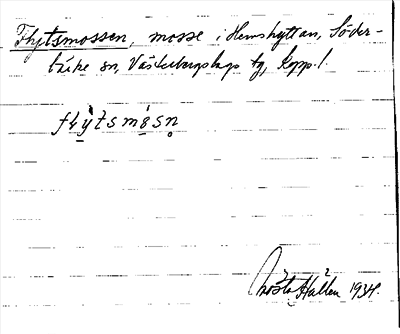 Flytsmossen, mosse i Hemshyttan, Söder-
bärke sn, Västerbergslags tg, Kopp. l.
flỳtsmósn̥
Gösta Hallén 1934.